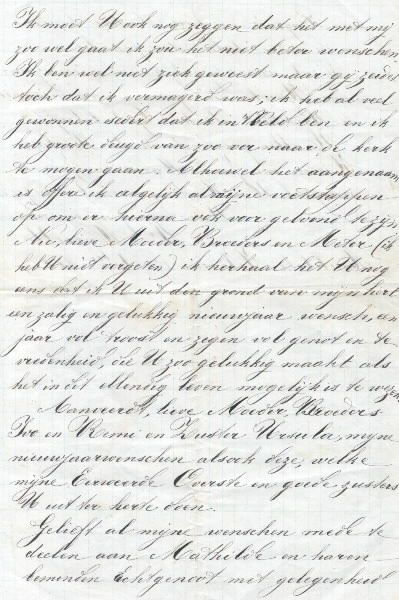 Ik moet U ook nog zeggen dat het met mij
zoo wel gaat ik zou het niet beter wenschen.
Ik ben wel niet ziek geweest maar gij zeidet
toch dat ik vermagerd was; ik heb al veel
gewonnen sedert dat ik in Weld ben en ik
heb groote deugd van zoo ver naar de kerk
te mogen gaan. Alhoewel het aangenaam
is offre ik algelijk al mijne voetstappen
op om er hierna ook voor geloond te zijn
Nu, lieve Moeder, Broeders en Meter (ik
heb U niet vergeten) ik herhaal het U nog
eens dat ik U uit den grond van mijn hert
een zalig en gelukkig nieuwjaar wensch, een
jaar vol troost en zegen vol genot en te
vredenheid, die U zoo gelukkig maakt als
het in dit ellendig leven mogelijk is te wezen
Aanveerdt, lieve Moeder, Broeders
Ivo en Remi en Zuster Ursula, mijne
nieuwjaarwenschen alsook deze, welke
mijne Eerweerde Overste en goede zusters
U uit ter herte doen.
Gelieft al mijne wenschen mede te
deelen aan Mathilde en haren
beminden Echtgenoot met gelegenheid